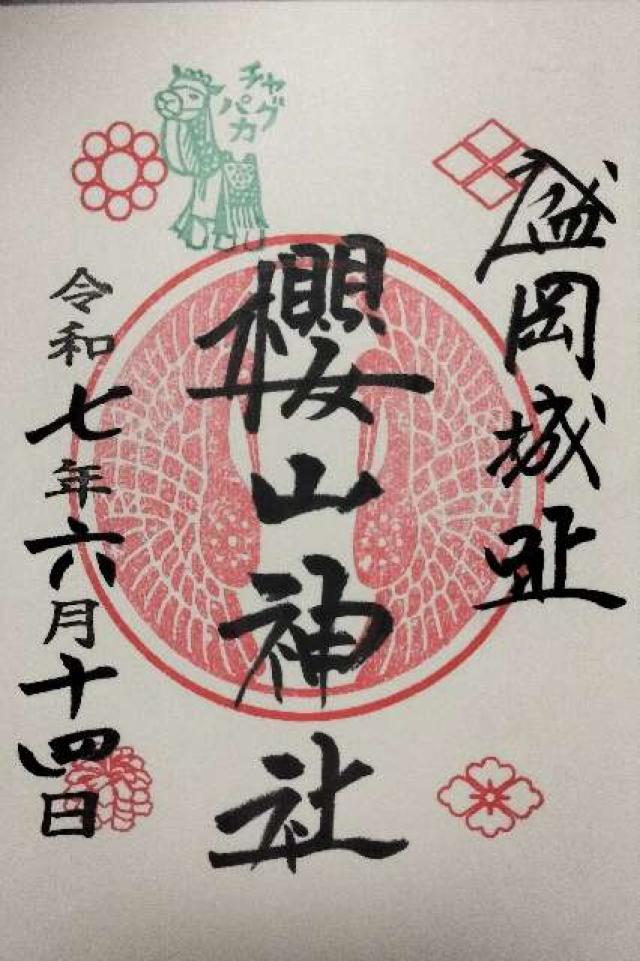 盛岡城趾
チャグ
パカ
櫻山神社
令和七年六月十四日